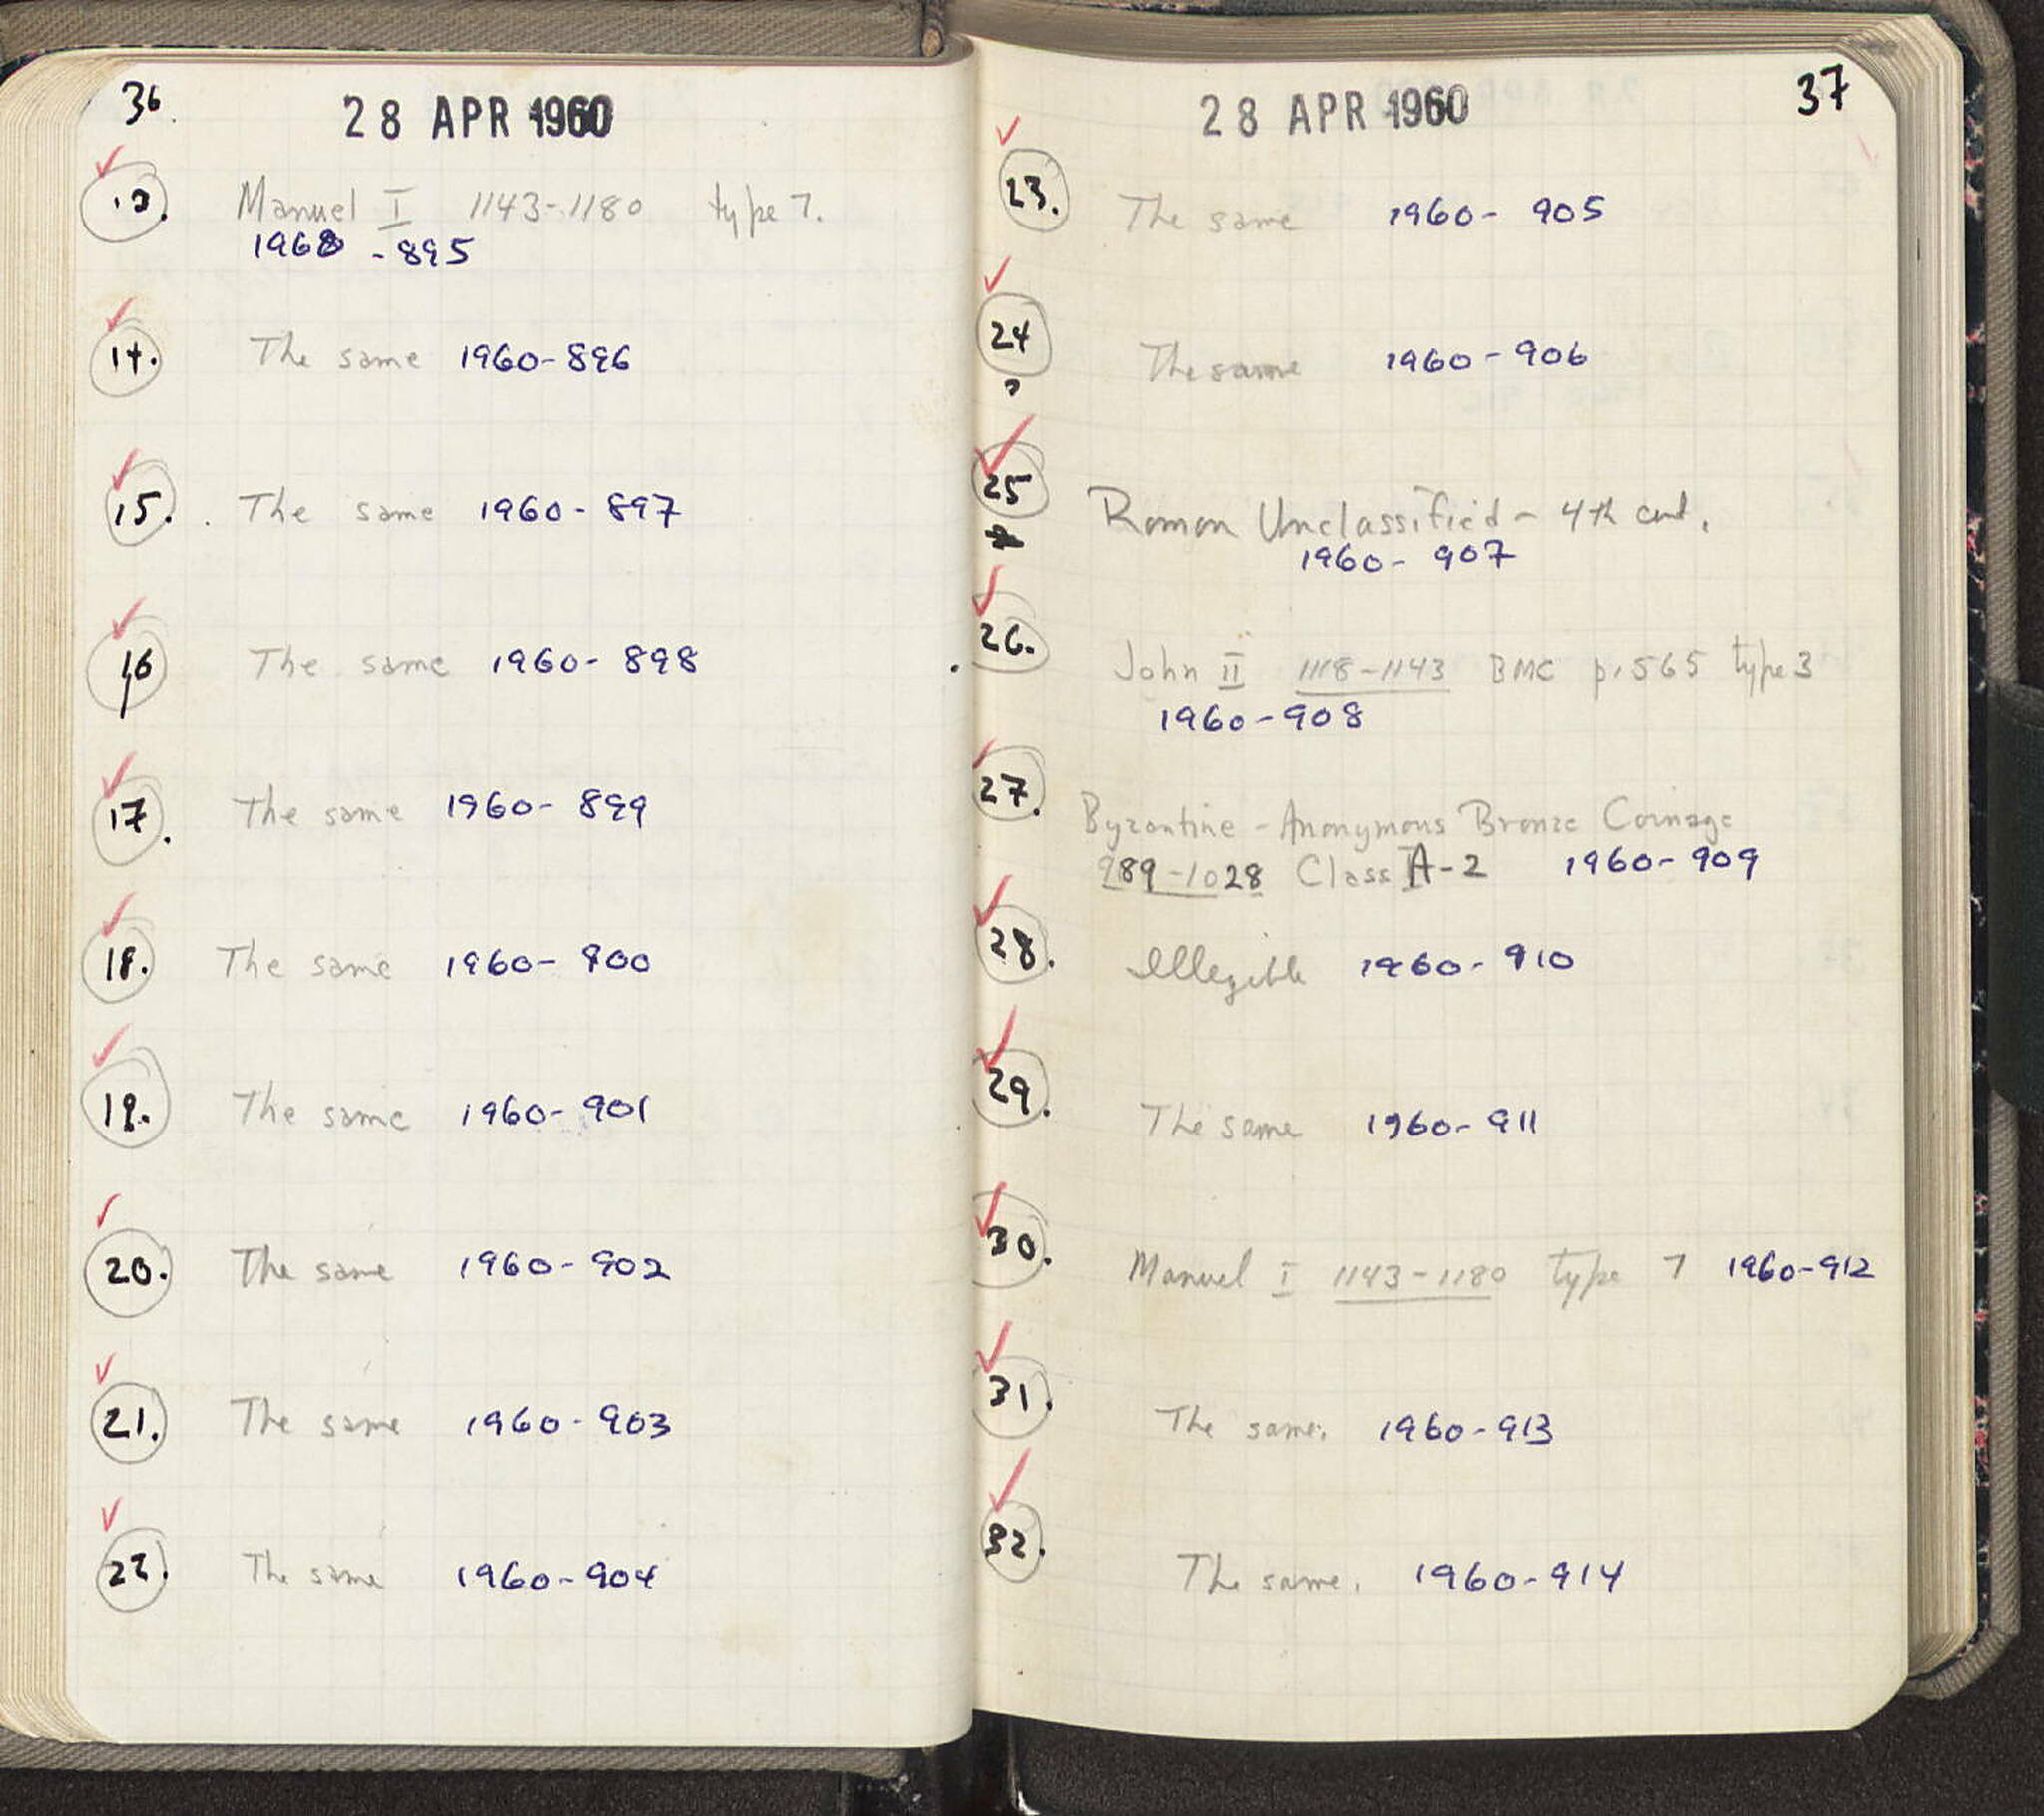 36.
28 APR 1960
13. Manuel I 1143-1180 type 7.
1960 - 895
14. The same 1960-896
15. The same 1960-897
16 The same 1960-898
17. The same 1960-899
18. The same 1960-900
19. The same 1960-901
20. The same 1960-902
21. The same 1960-903
22. The same 1960-904
37
28 APR 1960
23. The same 1960-905
24 The same 1960-906
25 Roman Unclassified - 4th cent.
1960-907
26. John II 1118-1143 BMC p.565 type 3
1960-908
27. Byzantine - Anonymous Bronze Coinage
989-1028 Class A-2 1960-909
28. Illegible 1960-910
29. The same 1960-911
30. Manuel I 1143-1180 type 7 1960-912
31. The same. 1960-913
32. The same. 1960-914